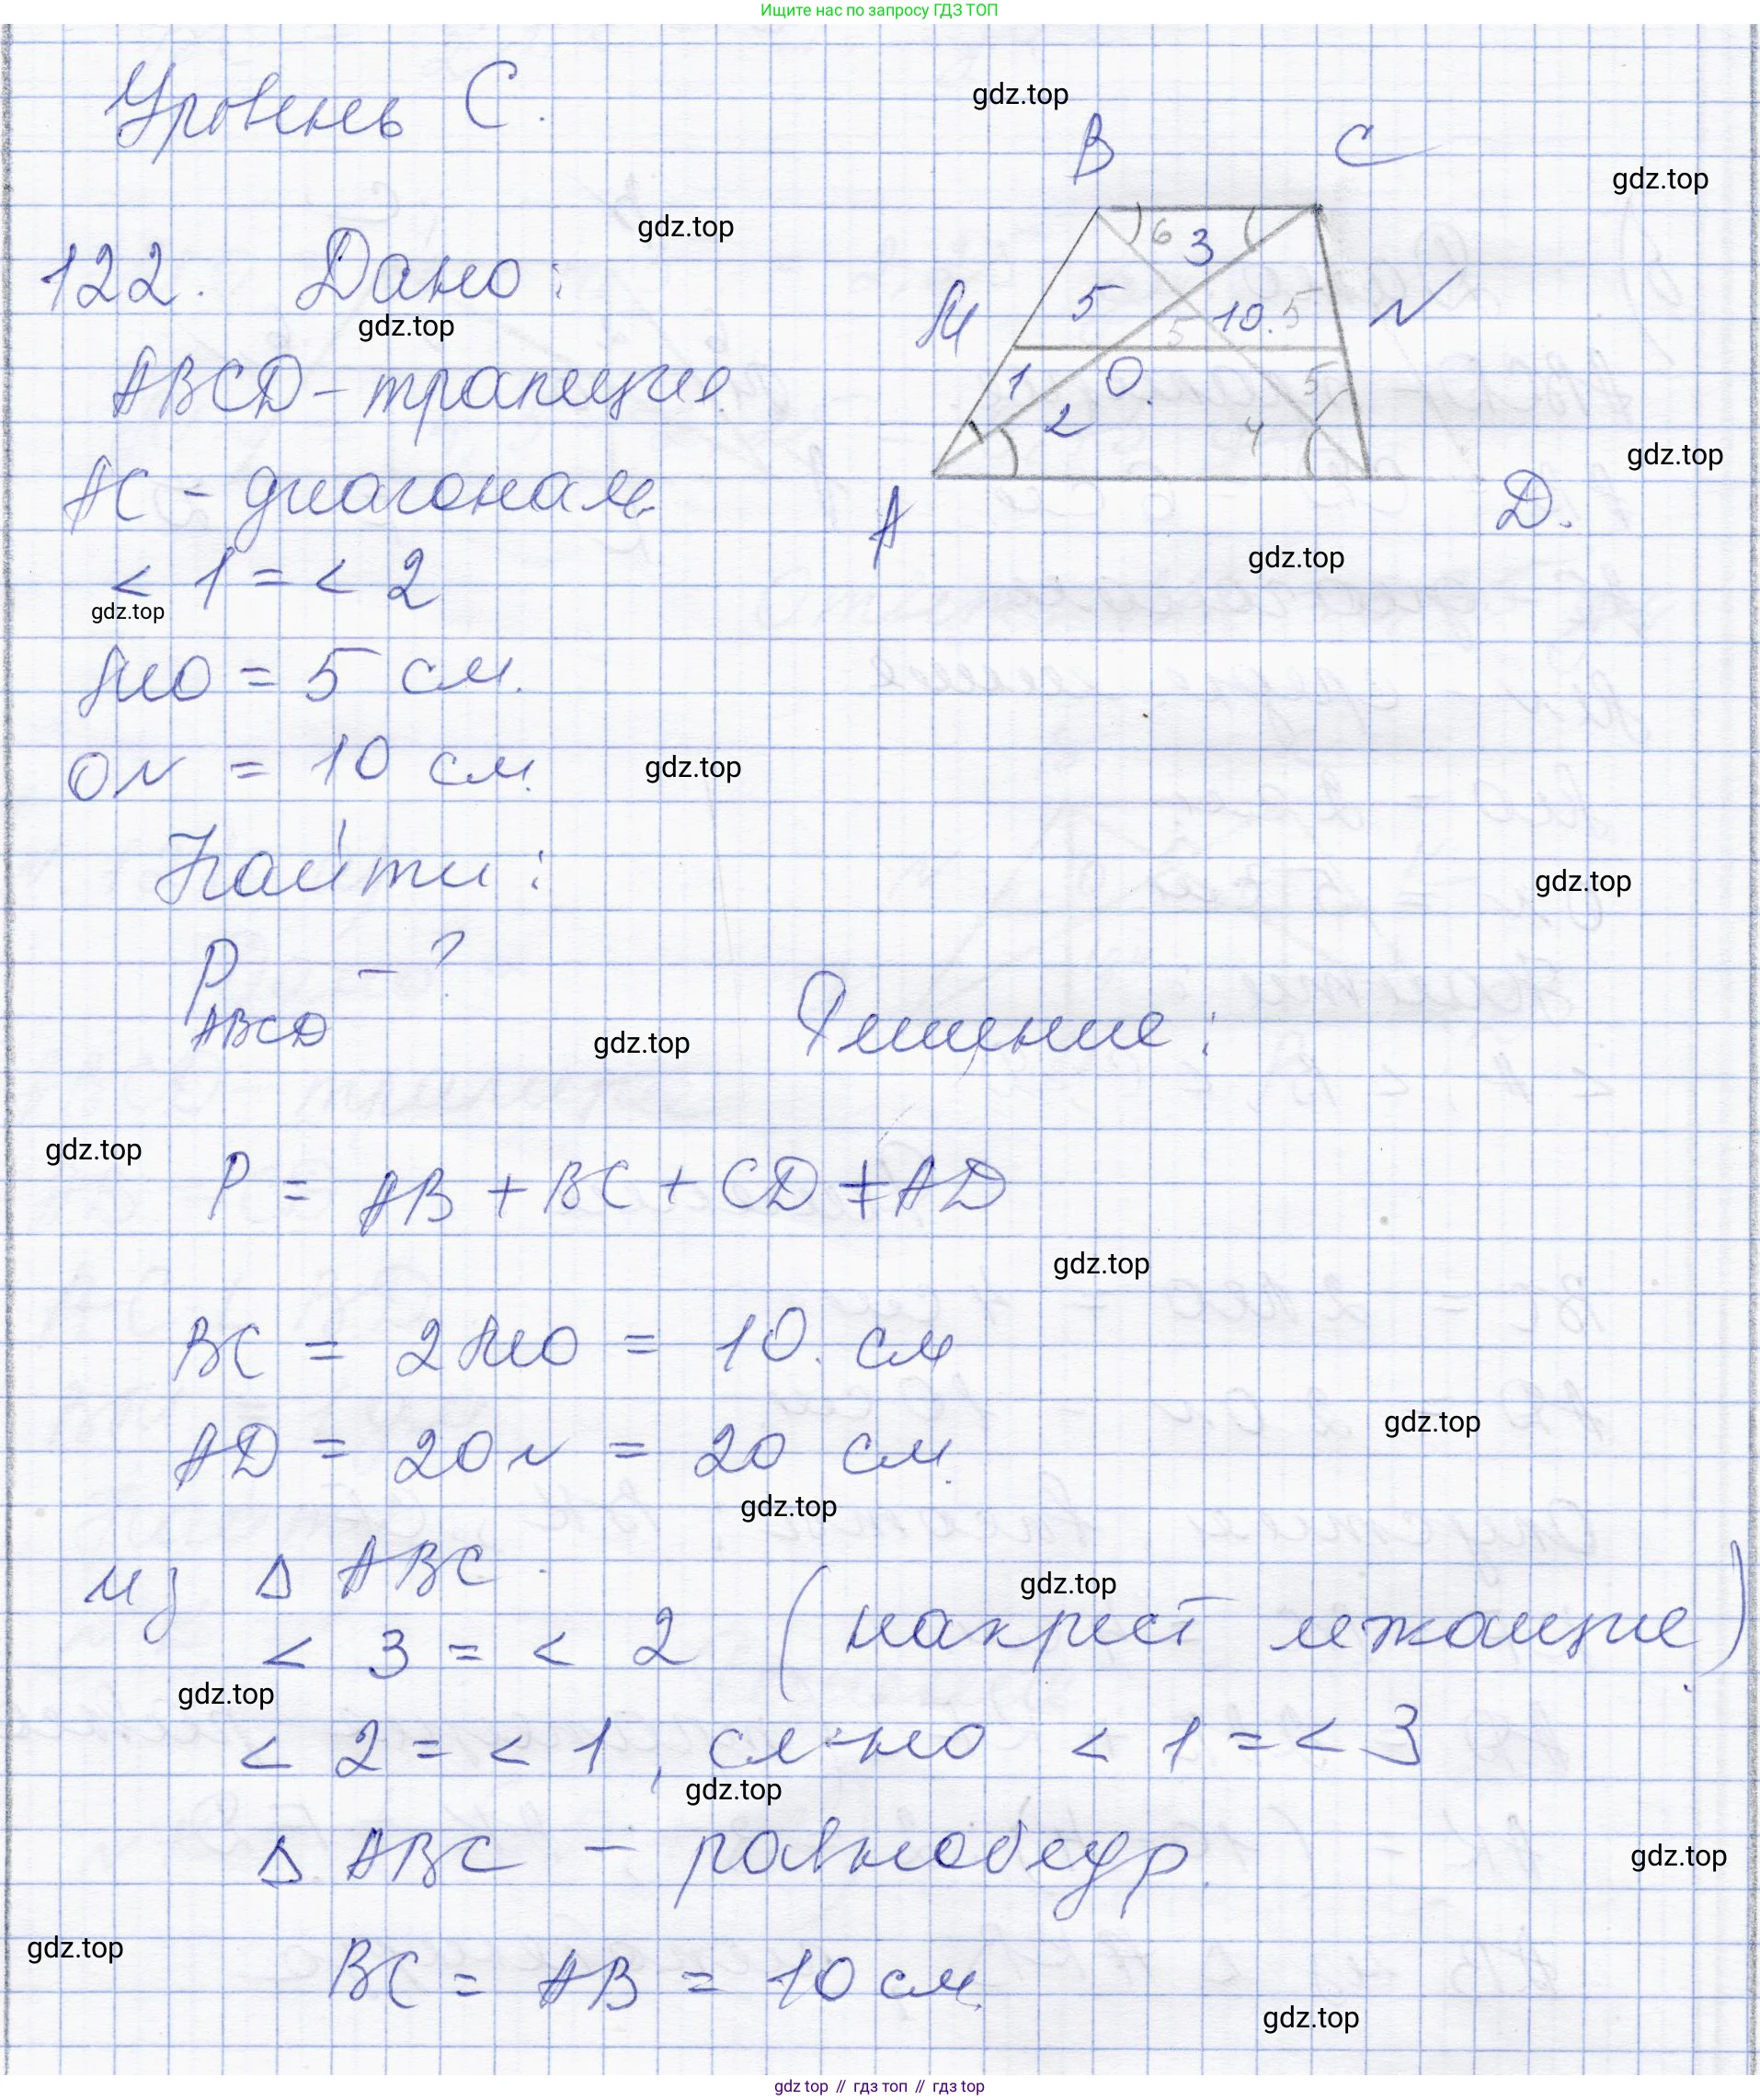 Ищите нас по запросу ГДЗ ТОП
Уровень С.
gdz.top
B C
gdz.top
gdz.top
6 3
122. Дано:
gdz.top
M 5 10. 5 N
5
ABCD - трапеция
1 O. 5
2 4
gdz.top
AC - диагональ
A D.
gdz.top
< 1 = < 2
gdz.top
MO = 5 см.
ON = 10 см.
gdz.top
Найти:
gdz.top
P ABCD - ?
gdz.top
Решение:
gdz.top
P = AB + BC + CD + AD
gdz.top
BC = 2MO = 10. см
gdz.top
AD = 2ON = 20 см.
gdz.top
из Δ ABC.
gdz.top
< 3 = < 2 (накрест лежащие).
gdz.top
< 2 = < 1, сл-но < 1 = < 3
gdz.top
Δ ABC - равнобедр.
gdz.top
gdz.top
BC = AB = 10 см.
gdz.top
gdz top // гдз топ // гдз top